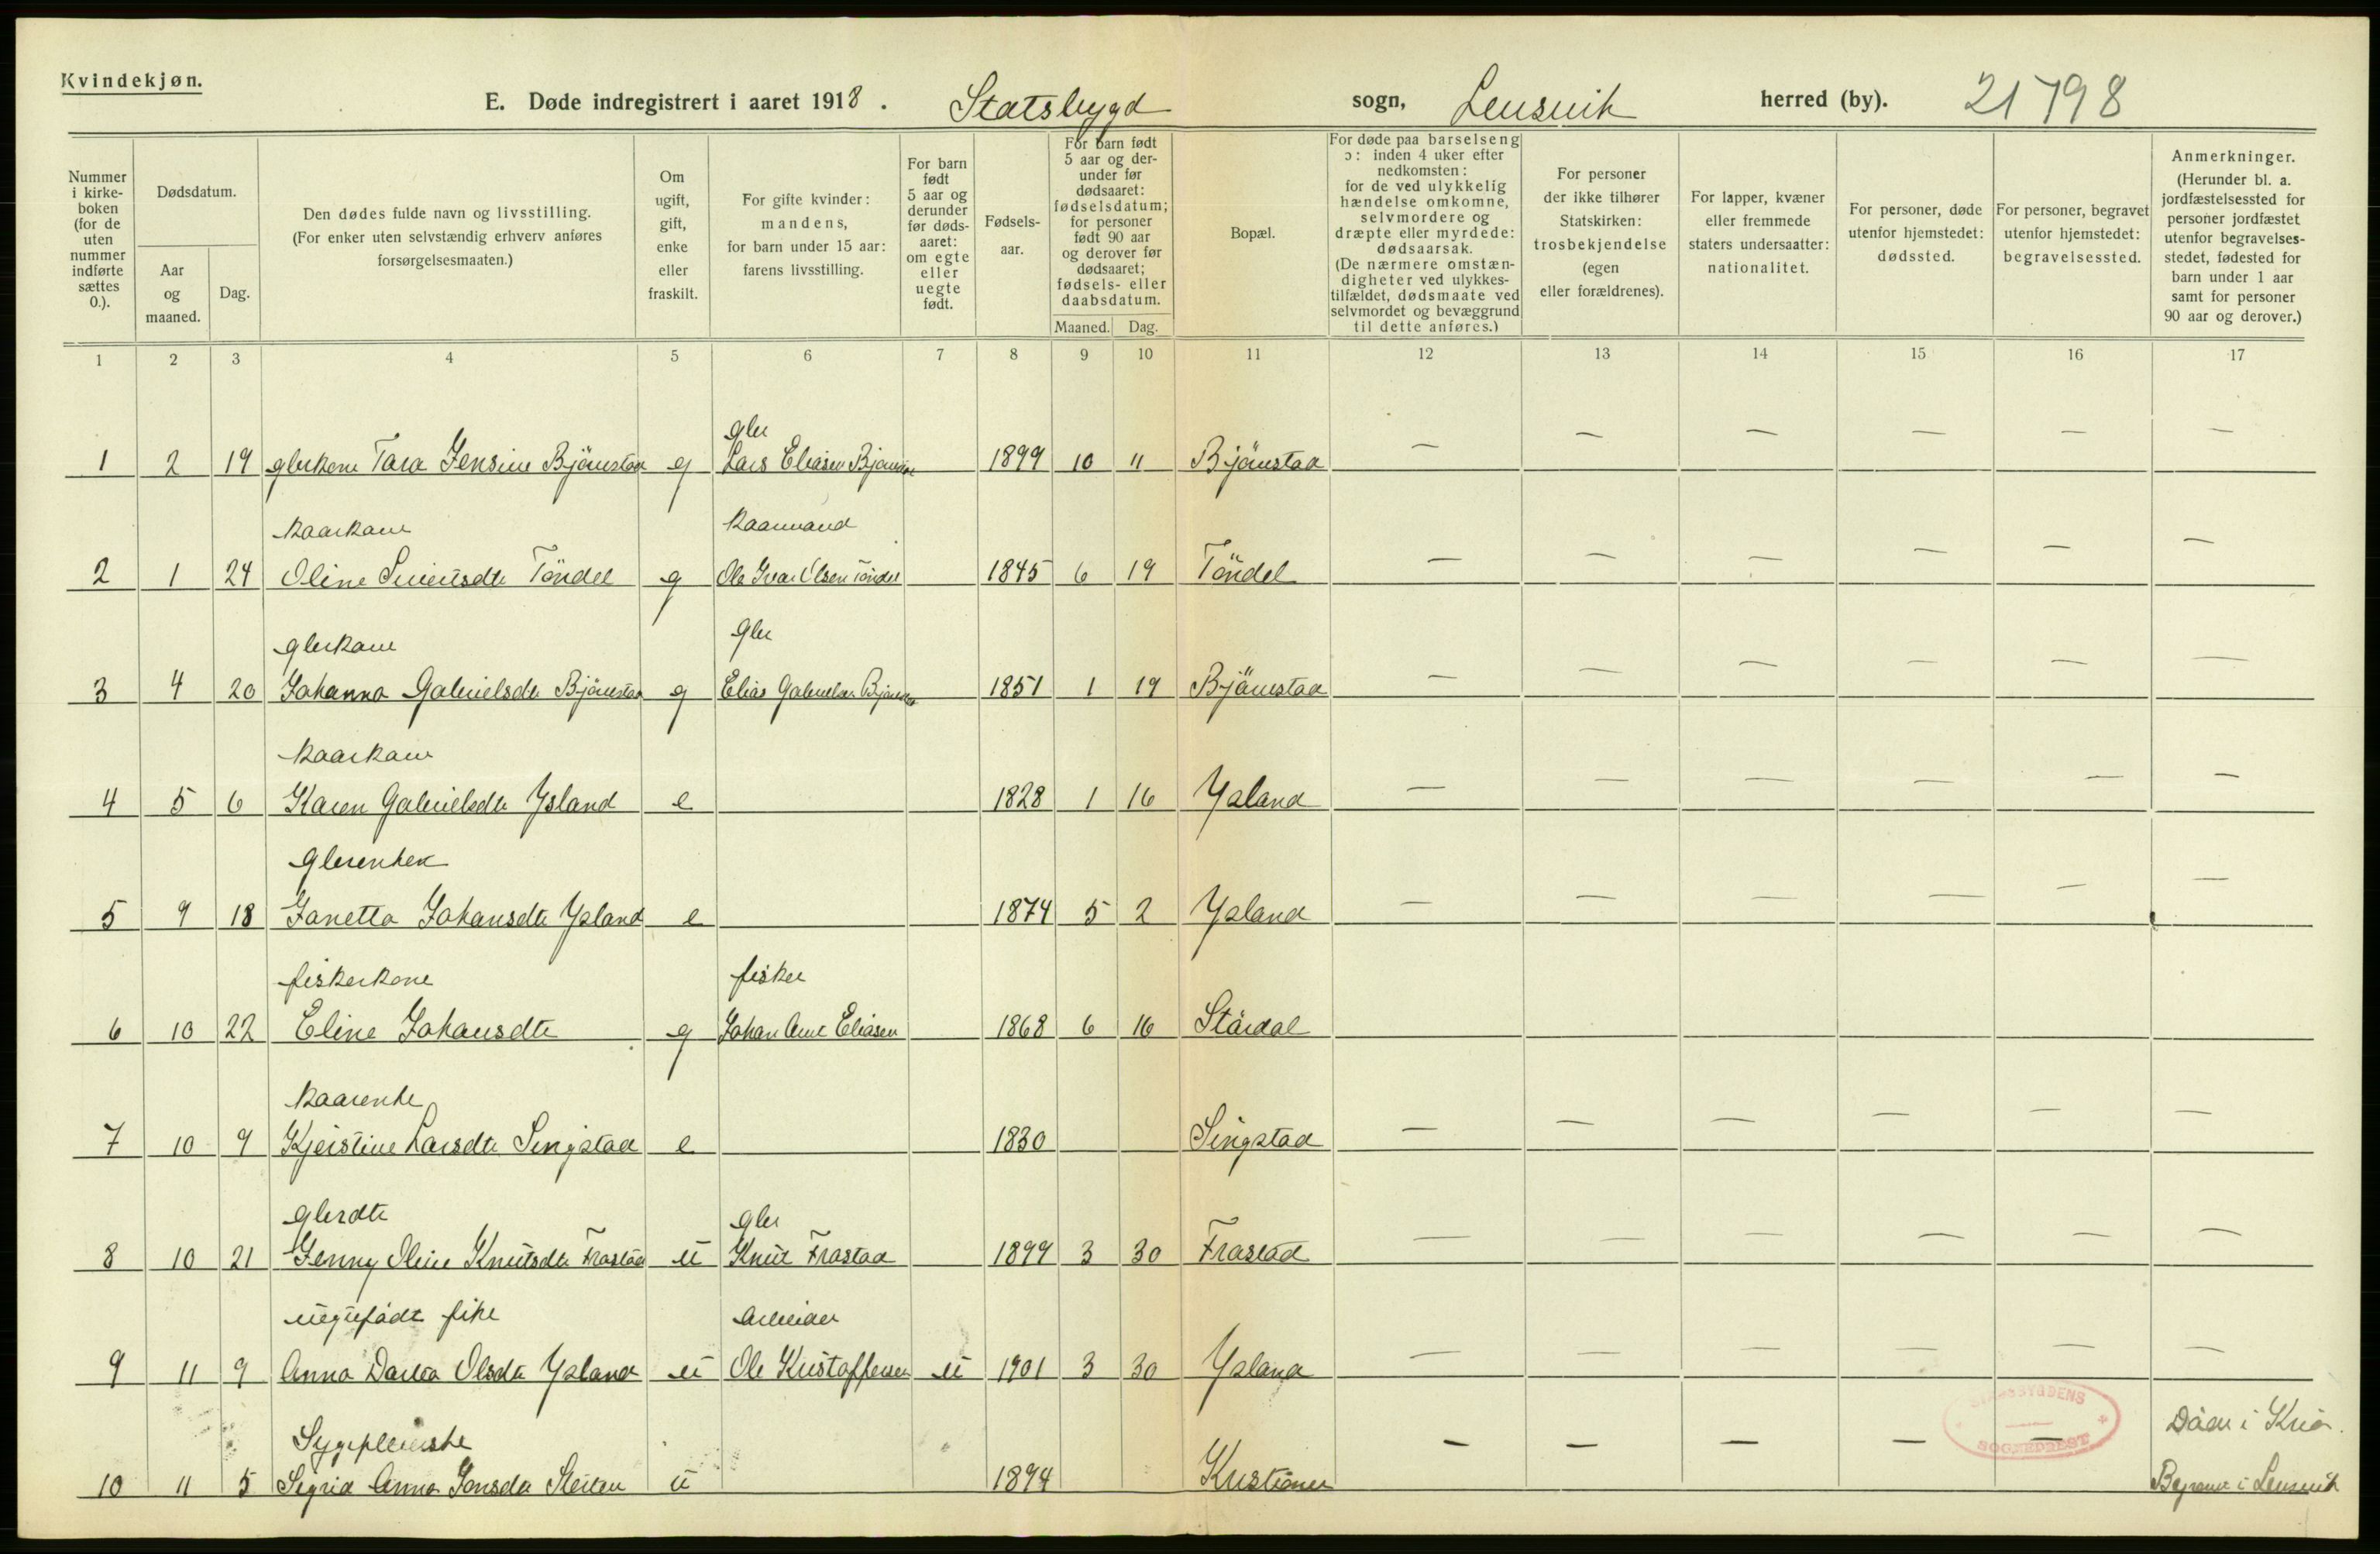 Kvindekjøn.
E. Døde indregistrert i aaret 1918. Statsbygd sogn, Lensvik herred (by). 21798
Nummer i kirke-boken (for de uten nummer indførte sættes 0.).
Dødsdatum.
Aar og maaned.
Dag.
Den dødes fulde navn og livsstilling. (For enker uten selvstændig erhverv anføres forsørgelsesmaaten.)
Om ugift, gift, enke eller fraskilt.
For gifte kvinder: mandens, for barn under 15 aar: farens livsstilling.
For barn født 5 aar og derunder før døds-aaret: om egte eller uegte født.
Fødsels-aar.
For barn født 5 aar og der-under før dødsaaret: fødselsdatum; for personer født 90 aar og derover før dødsaaret; fødsels- eller daabsdatum.
Maaned.
Dag.
Bopæl.
For døde paa barselseng ɔ: inden 4 uker efter nedkomsten: for de ved ulykkelig hændelse omkomne, selvmordere og dræpte eller myrdede: dødsaarsak. (De nærmere omstæn-digheter ved ulykkes-tilfældet, dødsmaate ved selvmordet og bevæggrund til dette anføres.)
For personer der ikke tilhører Statskirken: trosbekjendelse (egen eller forældrenes).
For lapper, kvæner eller fremmede staters undersaatter: nationalitet.
For personer, døde utenfor hjemstedet: dødssted.
For personer, begravet utenfor hjemstedet: begravelsessted.
Anmerkninger. (Herunder bl. a. jordfæstelsessted for personer jordfæstet utenfor begravelses-stedet, fødested for barn under 1 aar samt for personer 90 aar og derover.)
1 2 3 4 5 6 7 8 9 10 11 12 13 14 15 16 17
gbr
1 2 19 gbrkone Tara Jensine Bjönstad g Lars Eliasen 1899 10 11 Bjönstad — — — — — —
kaarkone kaarmand
2 1 24 Oline Töndel g Ole Ivar Olsen Töndel 1845 6 19 Töndel — — — — — —
gbrkone gbr
3 4 20 Johanna Gabrielsdtr Bjönstad g Elias Gabrielsen 1851 1 19 Bjönstad — — — — — —
kaarkone
4 5 6 Karen Gabrielsdtr Ysland e 1828 1 16 Ysland — — — — — —
5 9 18 Janetta Johansdtr Ysland e 1874 5 2 Ysland — — — — — —
fiskerkone fisker
6 10 22 Eline Johansdtr g Johan Eliasen 1868 6 16 Stárdal
kaarenke
7 10 9 Kjerstine Larsdtr Singstad e 1830 Singstad — — — — — —
gbrdtr gbr
8 10 21 Jenny Oline Knutsdtr Frastad u Knut Frastad 1899 3 30 Frastad — — — — — —
uegtefödt pike arbeider
9 11 9 Anna Dortea Olsdtr Ysland u Ole Kristoffersen u 1901 3 30 Ysland — — — — — —
Sygepleierske Död i Kria.
10 11 5 Sigrid Anna Jonsdtr u 1894 Kristiania — — — — — Begravet i Lensvik
STADSBYGDENS
SOGNEPREST